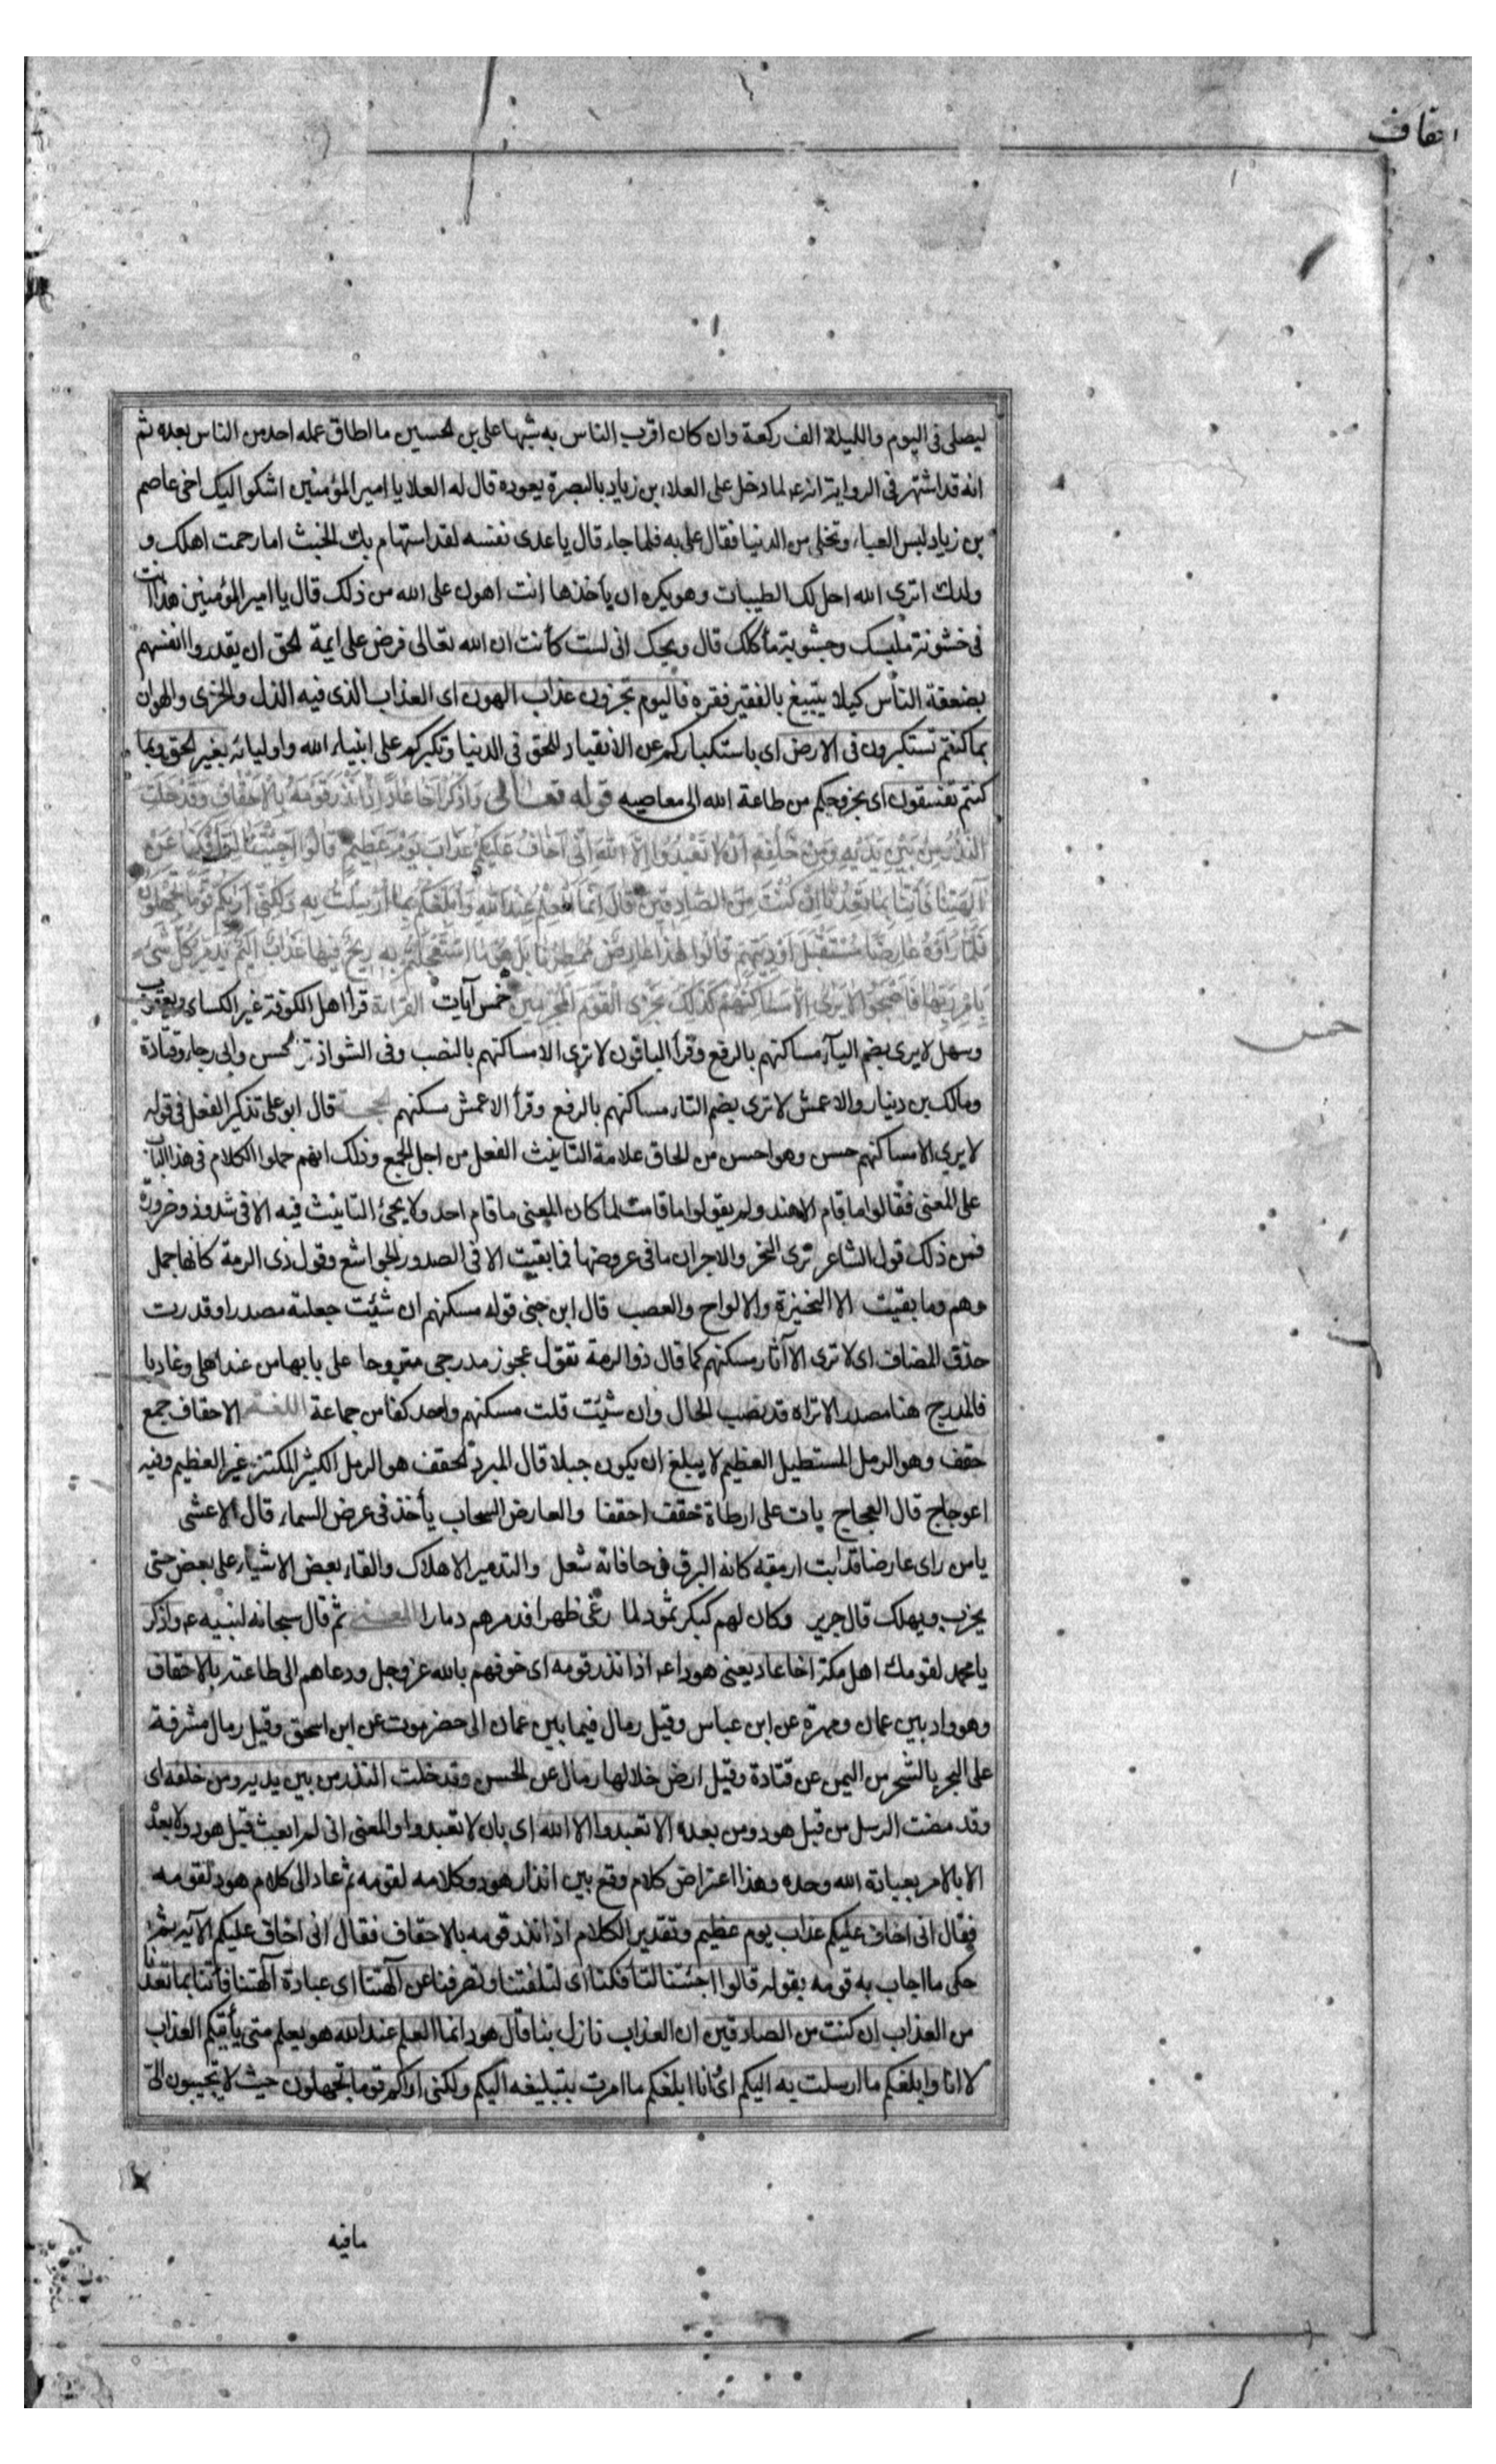 احقاف
ليصلى فى اليوم والليلة الف ركعة وان كان اقرب الناس به شبها على بن الحسين ما اطاق عمله احد من الناس بعده ثم
انه قد اشتهر فى الرواية انه ع لما دخل على العلاء بن زياد بالبصرة يعوده قال له العلا يا امير المؤمنين اشكو اليك اخى عاصم
بن زياد لبس العباء وتخلى من الدنيا فقال على به فلما جاء قال يا عدى نفسه لقد استهام بك الخبيث اما رحمت اهلك و
ولدك اترى الله احل لك الطيبات وهو يكره ان يأخذها انت اهون على الله من ذلك قال يا امير المؤمنين هذا انت
فى خشونة ملبسك وجشوبة مأكلك قال ويحك انى لست كأنت ان الله تعالى فرض على ايمة الحق ان يقدروا انفسهم
بضعفة الناس كيلا يتبيغ بالفقير فقره فاليوم تجزون عذاب الهون اى العذاب الذى فيه الذل والخزى والهوان
بما كنتم تستكبرون فى الارض اى باستكباركم عن الانقياد للحق فى الدنيا وتكبركم على انبياء الله واوليائه بغير الحق وبما
كنتم تفسقون اى بخروجكم من طاعة الله الى معاصيه قوله تعالى وَاذْكُرْ اَخَا عَادٍ اِذْ اَنْذَرَ قَوْمَهُ بِالْاَحْقَافِ وَقَدْ خَلَتِ
النُّذُرُ مِنْ بَيْنِ يَدَيْهِ وَمِنْ خَلْفِهِ اَنْ لَا تَعْبُدُوا اِلَّا اللهَ اِنِّى اَخَافُ عَلَيْكُمْ عَذَابَ يَوْمٍ عَظِيمٍ قَالُوا اَجِئْتَنَا لِتَأْفِكَنَا عَنْ
آلِهَتِنَا فَأْتِنَا بِمَا تَعِدُنَا اِنْ كُنْتَ مِنَ الصَّادِقِينَ قَالَ اِنَّمَا الْعِلْمُ عِنْدَ اللهِ وَاُبَلِّغُكُمْ مَا اُرْسِلْتُ بِهِ وَلَكِنِّى اَرَيكُمْ قَوْمًا تَجْهَلُونَ
فَلَمَّا رَاَوْهُ عَارِضًا مُسْتَقْبِلَ اَوْدِيَتِهِمْ قَالُوا هٰذَا عَارِضٌ مُمْطِرُنَا بَلْ هُوَ مَا اسْتَعْجَلْتُمْ بِهِ رِيحٌ فِيهَا عَذَابٌ اَلِيمٌ تُدَمِّرُ كُلَّ شَىْءٍ
بِاَمْرِ رَبِّهَا فَاَصْبَحُوا لَا يُرَى اِلَّا مَسَاكِنُهُمْ كَذَلِكَ نَجْزِى الْقَوْمَ الْمُجْرِمِينَ خمس آيات القراءة قرأ اهل الكوفة غير الكساى ويعقوب
خمس
وسهل لا يرى بضم الياء مساكنهم بالرفع وقرأ الباقون لا ترى الا مساكنهم بالنصب وفى الشواذ الحسن وابى رجاء وقتادة
ومالك بن دينار والاعمش لا ترى بضم التاء مساكنهم بالرفع وقرأ الاعمش مسكنهم الحجة قال ابو على تذكير الفعل فى قوله
لا يرى الا مساكنهم حسن وهو احسن من الحاق علامة التانيث الفعل من اجل الجمع وذلك انهم حملوا الكلام فى هذا الباب
على المعنى فقالوا ما قام الا هند ولم يقولوا ما قامت لما كان المعنى ما قام احد ولا يجئ التانيث فيه الا فى شذوذ وضرورة
فمن ذلك قول الشاعر ترى النحر والاجران ما فى عروضها فما بقيت الا فى الصدور الجواشع وقول ذى الرمة كانها جمل
وهم وما بقيت الا النخيزة والالواح والعصب قال ابن جنى قوله مسكنهم ان شئت جعلته مصدرا وقدرت
حذف المضاف اى لا ترى الا آثار مسكنهم كما قال ذو الرمة تقول عجوز مدرجى متروحا على بابها من عند اهلى وغاديا
فالمدرج هنا مصدر الا تراه قد نصب الحال وان شئت قلت مسكنهم واحد كفا من جماعة اللغة الاحقاف جمع
حقف وهو الرمل المستطيل العظيم لا يبلغ ان يكون جبلا قال المبرد الحقف هو الرمل الكثير المكتنز غير العظيم وفيه
اعوجاج قال العجاج بات على ارطاة حقف احقفا والعارض السحاب يأخذ فى عرض السماء قال الاعشى
يا من راى عارضا قد ابت ارمقه كانه البرق فى حافاته شعل والتدمير الاهلاك والقاء بعض الاشياء على بعض حتى
يخرب ويهلك قال جرير وكان لهم كبكر ثمود لما رغى ظهرا فدمرهم دمارا المعنى ثم قال سبحانه لنبيه ع واذكر
يا محمد لقومك اهل مكة اخا عاد يعنى هودا ع اذ انذر قومه اى خوفهم بالله عز وجل ودعاهم الى طاعته بالاحقاف
وهو واد بين عمان ومهرة عن ابن عباس وقيل رمال فيما بين عمان الى حضرموت عن ابن اسحق وقيل رمال مشرفة
على البحر بالشحر من اليمن عن قتادة وقيل ارض خلالها رمال عن الحسن وقد خلت النذر من بين يديه ومن خلفه اى
وقد مضت الرسل من قبل هود ومن بعده الا تعبدوا الا الله اى بان لا تعبدوا والمعنى انى لم ابعث قبل هود ولا بعده
الا بالامر بعبادة الله وحده وهذا اعتراض كلام وقع بين انذار هود وكلامه لقومه ثم عاد الى كلام هود لقومه
فقال انى اخاف عليكم عذاب يوم عظيم وتقدير الكلام اذ انذر قومه بالاحقاف فقال انى اخاف عليكم الآية ثم
حكى ما اجاب به قومه بقوله قالوا اجئتنا لتافكنا اى لتلفتنا وتصرفنا عن آلهتنا اى عبادة آلهتنا فأتنا بما تعدنا
من العذاب ان كنت من الصادقين ان العذاب نازل بنا قال هود انما العلم عند الله هو يعلم متى يأتيكم العذاب
لا انا وابلغكم ما ارسلت به اليكم اى انا ابلغكم ما امرت بتبليغه اليكم ولكنى اراكم قوما تجهلون حيث لا تجيبون الى
ما فيه